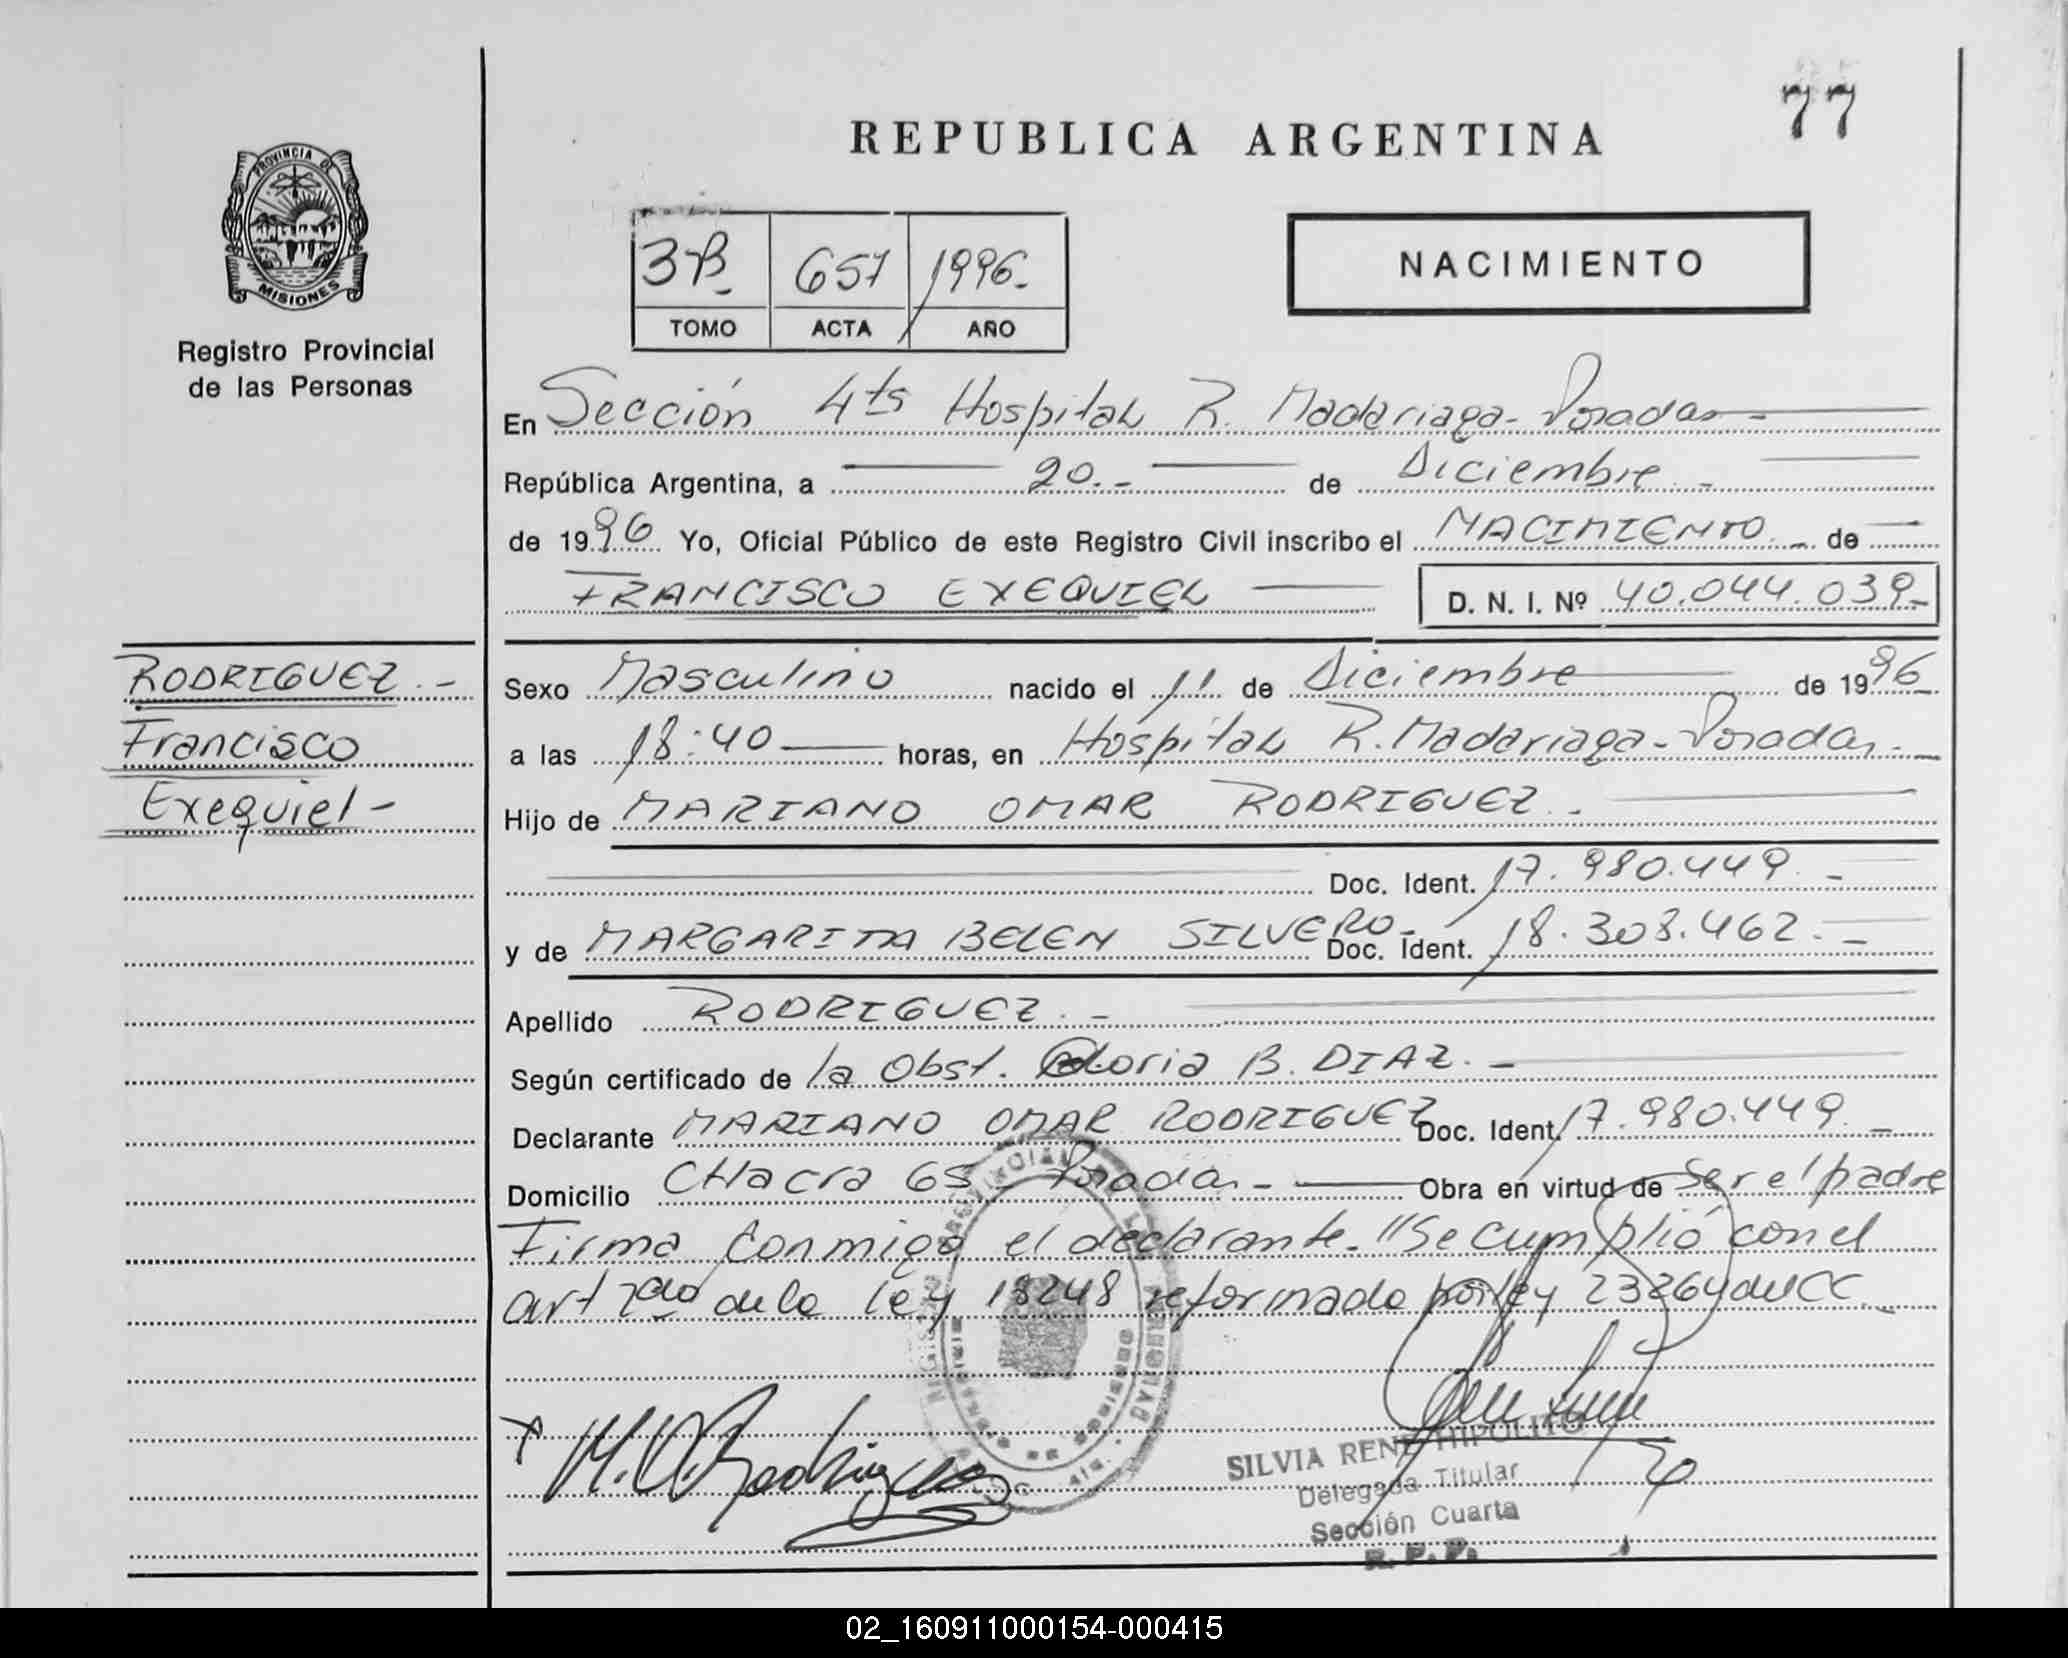 77
REPUBLICA ARGENTINA
PROVINCIA DE
MISIONES
Registro Provincial
de las Personas
3B. 657 1996.
TOMO ACTA AÑO
NACIMIENTO
En Sección 4ta Hospital R. Madariaga - Posadas -
República Argentina, a 20.- de Diciembre -
de 1996 Yo, Oficial Público de este Registro Civil inscribo el NACIMIENTO. - de
FRANCISCO EXEQUIEL D. N. I. Nº 40.044.039-
RODRIGUEZ. -
Francisco
Exequiel -
Sexo Masculino nacido el 11 de Diciembre de 1996
a las 18:40 horas, en Hospital R. Madariaga - Posadas -
Hijo de MARIANO OMAR RODRIGUEZ. -
Doc. Ident. 17.980.449. -
y de MARGARITA BELEN SILVERO - Doc. Ident. 18.308.462. -
Apellido RODRIGUEZ. -
Según certificado de la Obst. Gloria B. DIAZ. -
Declarante MARIANO OMAR RODRIGUEZ Doc. Ident. 17.980.449. -
Domicilio CHacra 65 - Posadas - Obra en virtud de ser el padre
Firma conmigo el declarante. "Se cumplió con el
art 2do de la ley 18248 reformado por ley 23264 del CC. -
M.O. Rodriguez
SILVIA RENE HIPOLITO
Delegada Titular
Sección Cuarta
R. P. P.
02_160911000154-000415